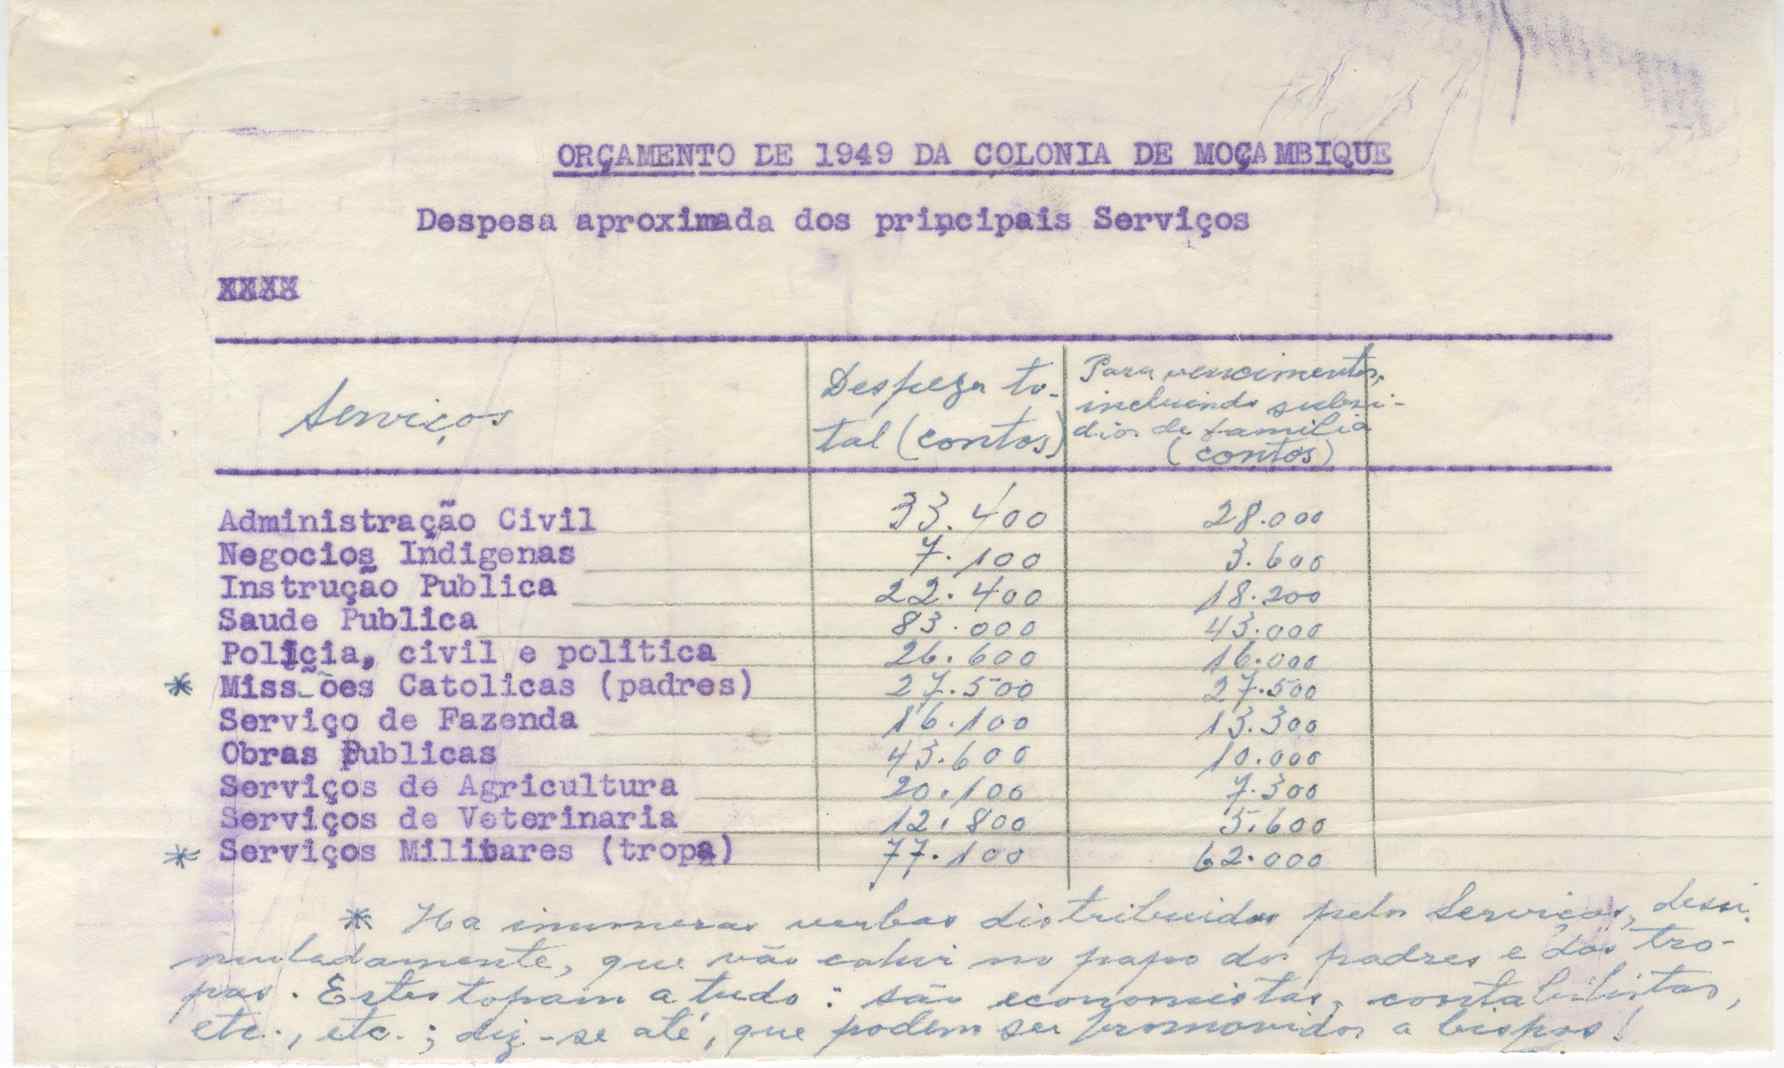 ORÇAMENTO DE 1949 DA COLONIA DE MOÇAMBIQUE
Despesa aproximada dos principais Serviços
XXXX
Serviços
Despeza to-
tal (contos)
Para vencimentos,
incluindo subsi-
dios de familia
(contos)
Administração Civil 33.400 28.000
Negocios Indigenas 7.100 3.600
Instrução Publica 22.400 18.200
Saude Publica 83.000 43.000
Policia, civil e politica 26.600 16.000
* Missões Catolicas (padres) 27.500 27.500
Serviço de Fazenda 16.100 13.300
Obras Publicas 43.600 10.000
Serviços de Agricultura 20.100 7.300
Serviços de Veterinaria 12.800 5.600
* Serviços Militares (tropa) 77.100 62.000
* Ha inumeras verbas distribuidas pelos Serviços, dissi-
muladamente, que vão cahir no papo dos padres e das tro-
pas. Estes topam a tudo: são economistas, contabilistas,
etc., etc.; diz-se até, que podem ser promovidos a bispos!